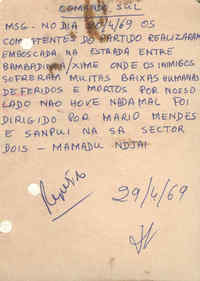 COMANDO SUL
MSG - NO DIA 20/4/69 OS
COMBATENTES DO PARTIDO REALIZARAM
EMBOSCADA NA ESTRADA ENTRE
BAMBADINCA/XIME ONDE OS INIMIGOS
SOFRERAM MUITAS BAIXAS HUMANAS
DE FERIDOS E MORTOS POR NOSSO
LADO NÃO HOVE NADA MAL FOI
DIRIGIDO POR MARIO MENDES
E SANPUI NA SA SECTOR
DOIS - MAMADU NDJAI
29/4/69